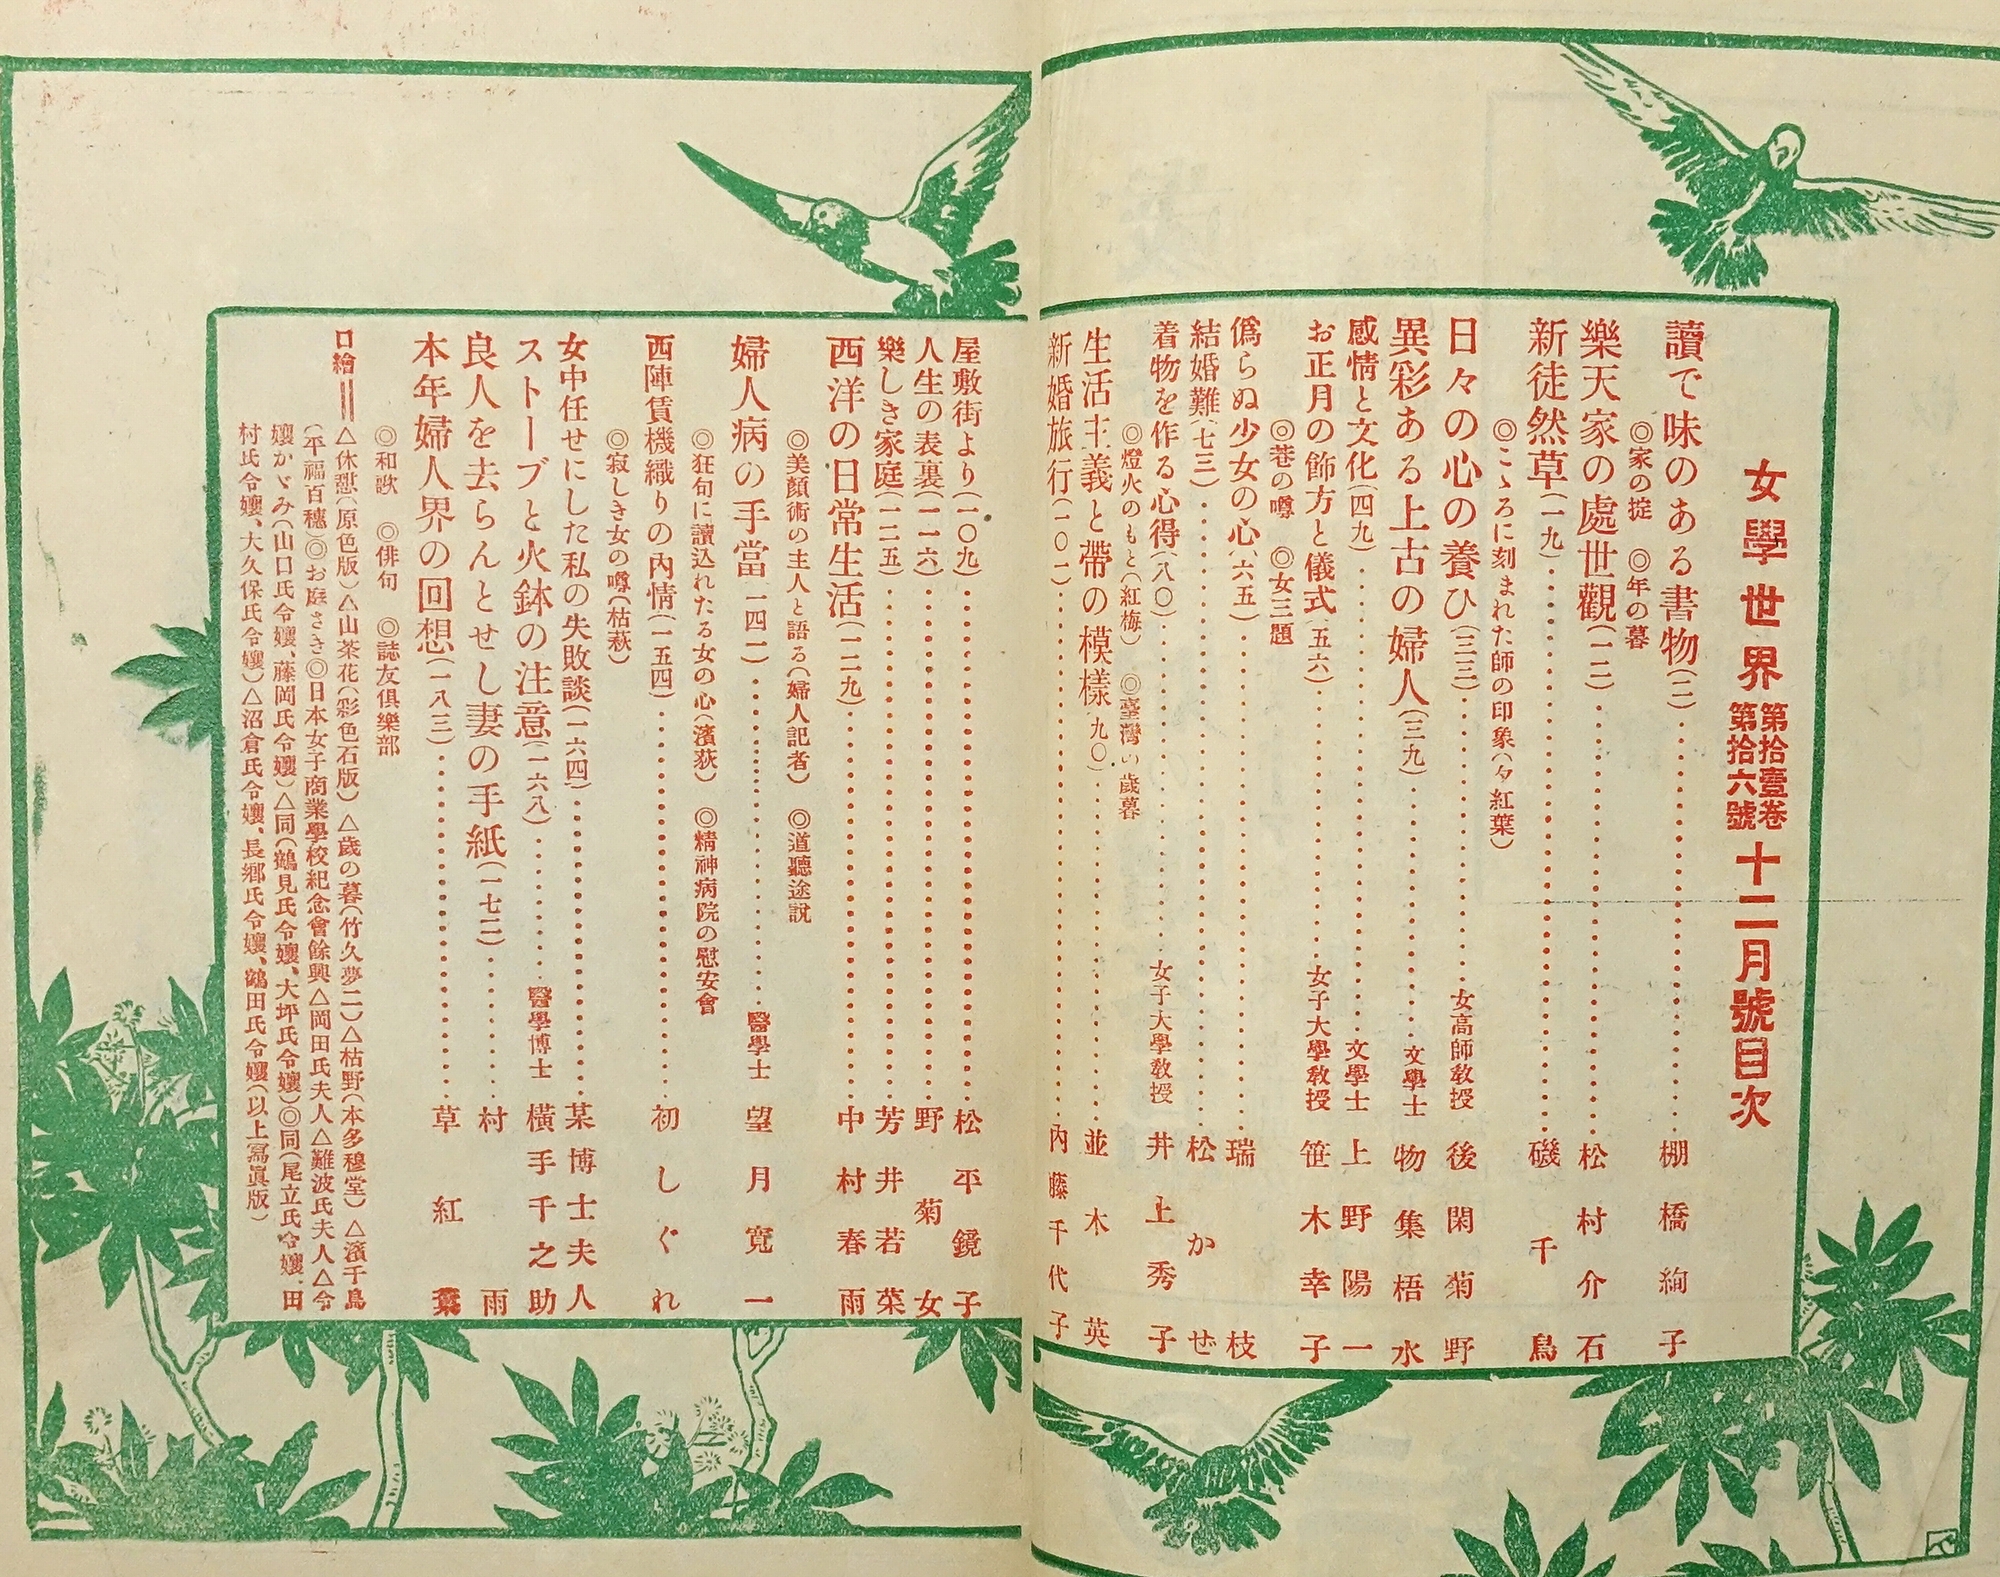 女學世界 第拾壹卷 第拾六號 十二月號目次
讀で味のある書物(二)………棚橋絢子
◎家の掟 ◎年の暮
樂天家の處世觀(一二)………松村介石
新徒然草(一九)………磯千鳥
◎こゝろに刻まれた師の印象(夕紅葉)
日々の心の養ひ(三三)………女高師敎授 後閑菊野
異彩ある上古の婦人(三九)………文學士 物集梧水
感情と文化(四九)………文學士 上野陽一
お正月の飾方と儀式(五六)………女子大學敎授 笹木幸子
◎巷の噂 ◎女三題
僞らぬ少女の心(六五)………瑞枝
結婚難(七三)………松かぜ
着物を作る心得(八〇)………女子大學敎授 井上秀子
◎燈火のもと(紅梅) ◎臺灣の歲暮
生活主義と帶の模樣(九〇)………並木英
新婚旅行(一〇一)………內藤千代子
屋敷街より(一〇九)………松平鏡子
人生の表裏(一一六)………野菊女
樂しき家庭(一二五)………芳井若菜
西洋の日常生活(一二九)………中村春雨
◎美顏術の主人と語る(婦人記者) ◎道聽途說
婦人病の手當(一四二)………醫學士 望月寬一
◎狂句に讀込れたる女の心(濱荻) ◎精神病院の慰安會
西陣賃機織りの內情(一五四)………初しぐれ
◎寂しき女の噂(枯萩)
女中任せにした私の失敗談(一六四)………某博士夫人
ストーブと火鉢の注意(一六八)………醫學博士 橫手千之助
良人を去らんとせし妻の手紙(一七二)………村雨
本年婦人界の回想(一八三)………草紅葉
◎和歌 ◎俳句 ◎誌友俱樂部
口繪══△休憩(原色版)△山茶花(彩色石版)△歲の暮(竹久夢二)△枯野(本多穆堂)△濱千鳥
(平福百穗)◎お庭さき◎日本女子商業學校紀念會餘興△岡田氏夫人△難波氏夫人△令
孃かゞみ(山口氏令孃、藤岡氏令孃)△同(鶴見氏令孃、大坪氏令孃)◎同(尾立氏令孃、田
村氏令孃、大久保氏令孃)△沼倉氏令孃、長鄕氏令孃、鶴田氏令孃(以上寫眞版)